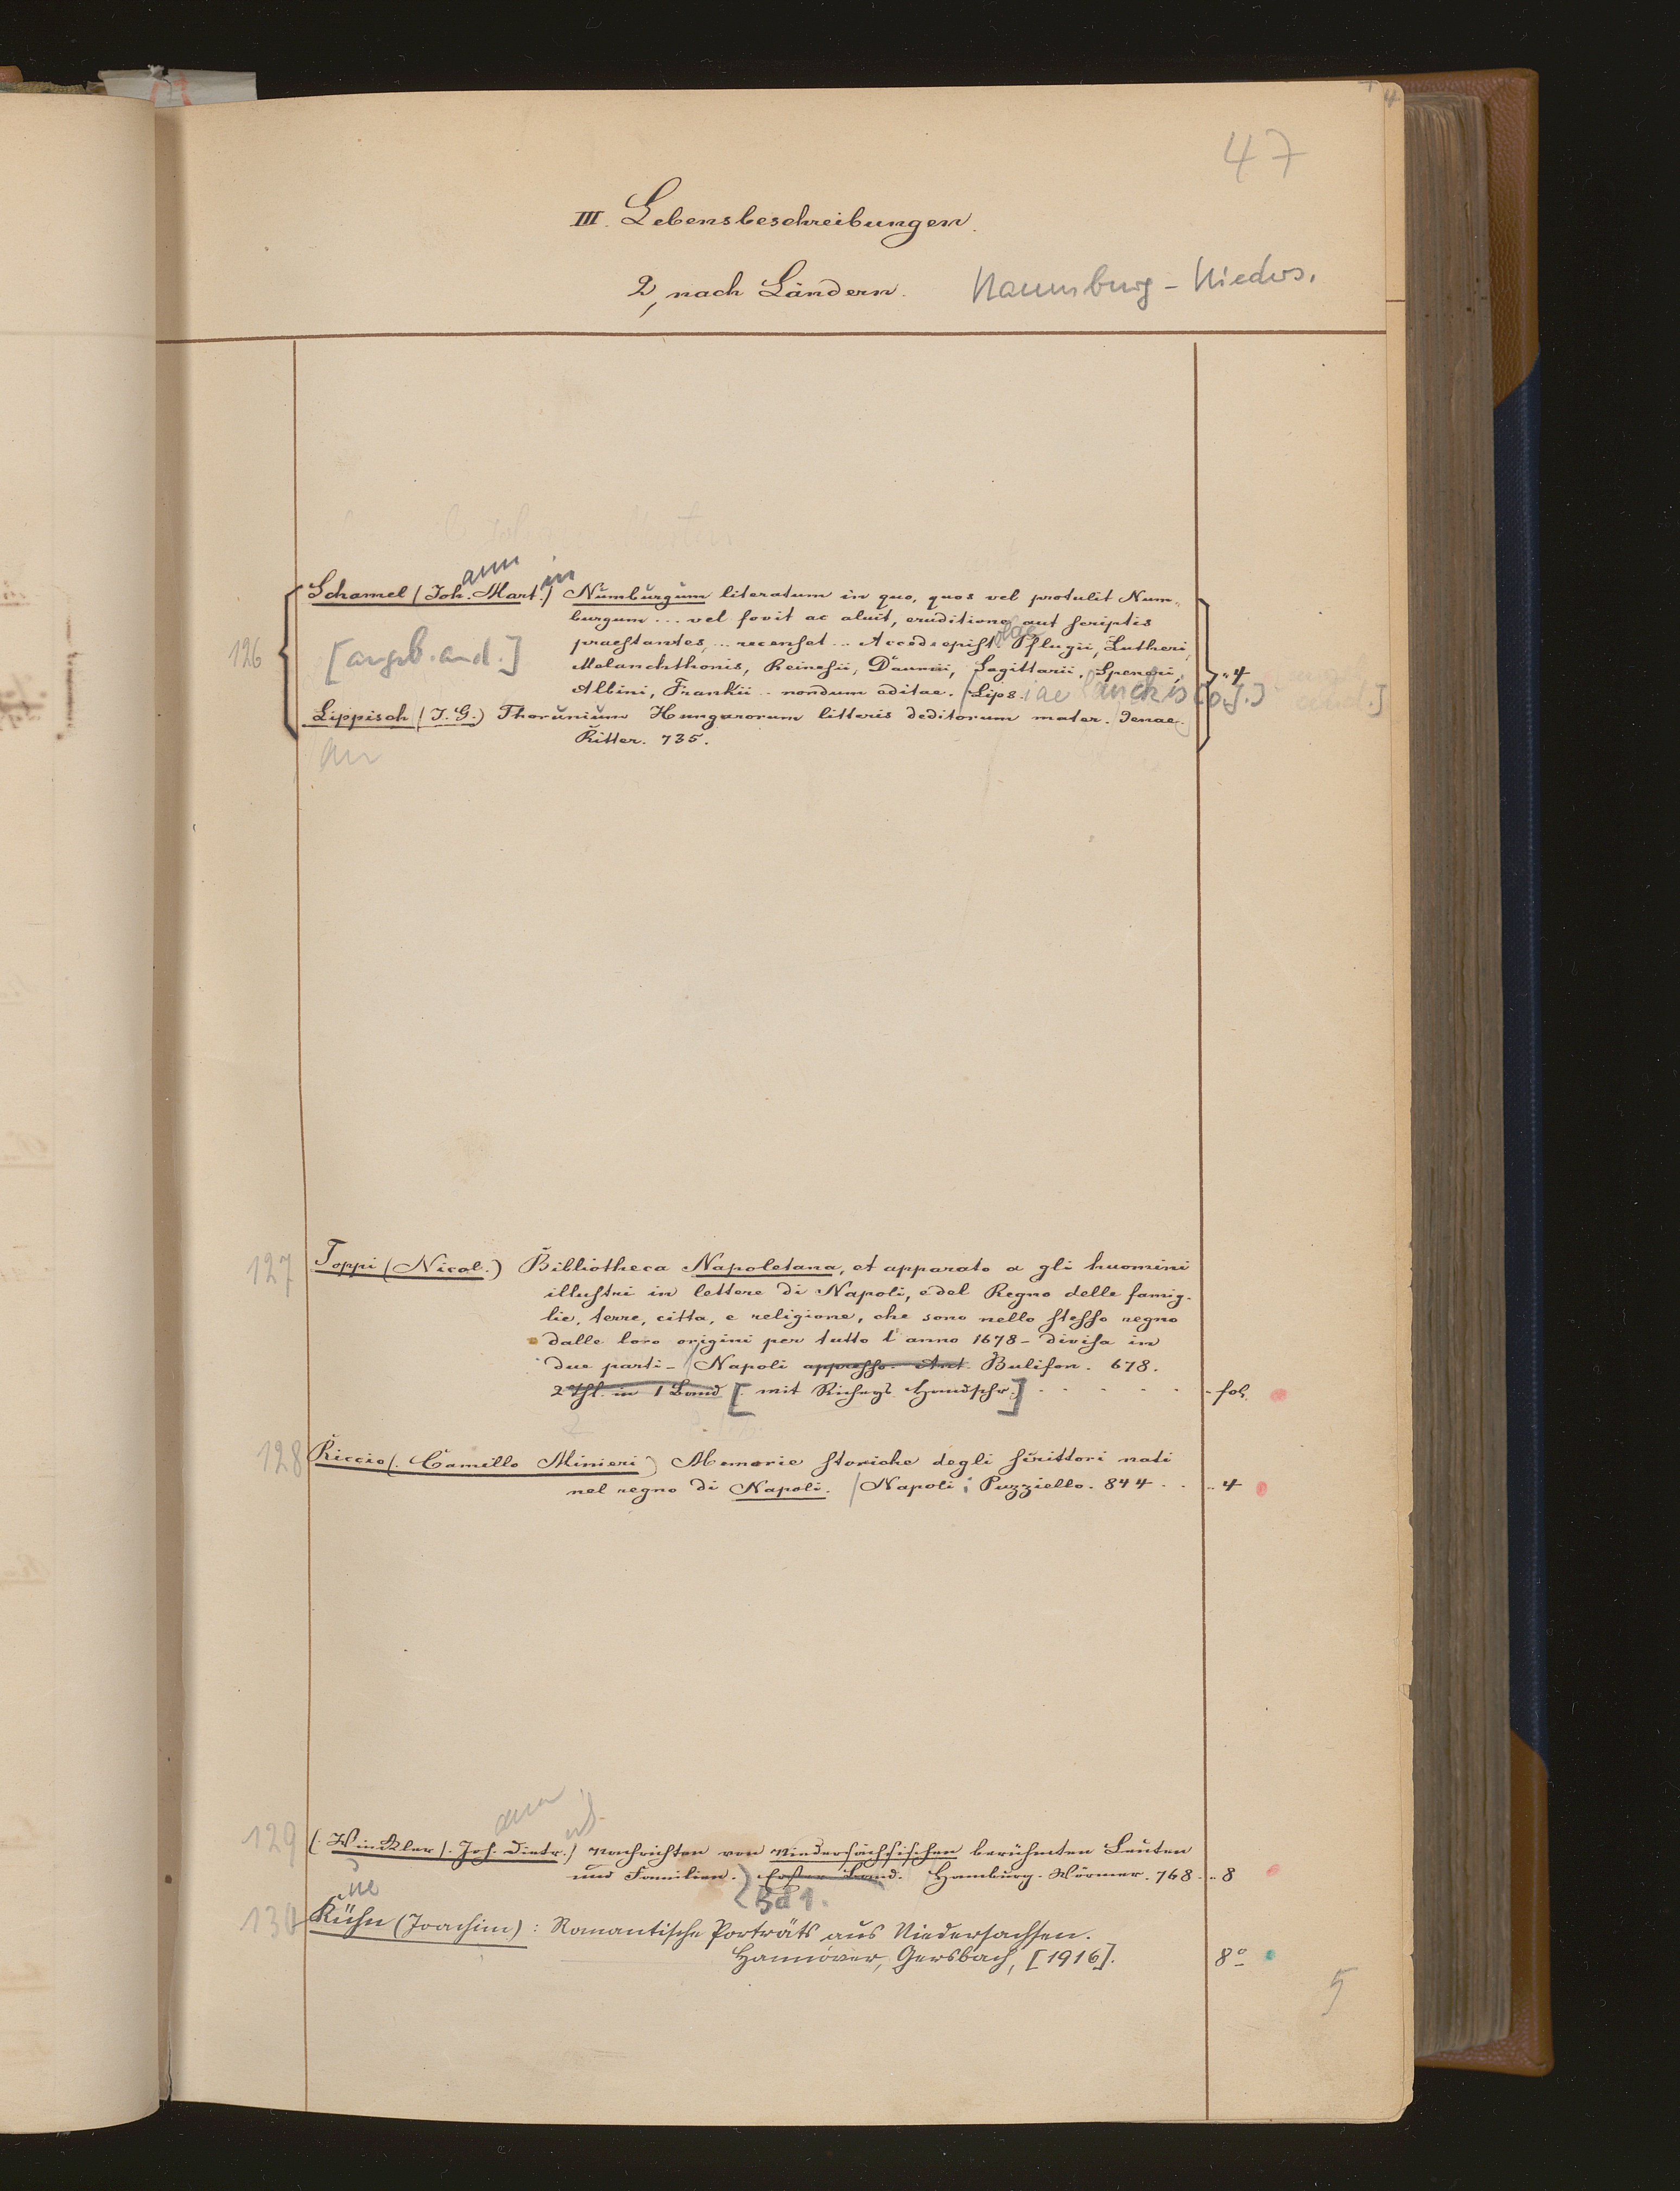 47
III. Lebensbeschreibungen.
2, nach Ländern. Naumburg - Nieders.
ann in
Schamel (Joh. Mart.) Numburgum literatum in quo, quos vel protulit Num-
burgum ... vel fovit ac aluit, eruditione aut scriptis
126 [angeb. and.] praestantes, ... recenset ... Acced. epist. Pflugii, Lutheri,
Melanchthonis, Reinesii, Daumii, Sagittarii, Speneri, " 4
Albini, Frankii .. nondum editae. (Lips. iae Lanckis [o.J.]
Lippisch (J. G.) Thorunium Hungarorum litteris deditorum mater. Jenae.
Ritter. 735.
127 Toppi (Nicol.) Bibliotheca Napoletana, et apparato a gli huomini
illustri in lettere di Napoli, e del Regno delle famig-
lie, terre, citta, e religione, che sono nello stesso regno
dalle loro origini per tutto l'anno 1678 - divisa in
due parti - / Napoli appresso. Ant. Bulifon. 678.
2 Thl. in 1 Band [. mit Richeys Handschr.] . . . . . - fol.
128 Riccio (. Camillo Minieri) Memorie storiche degli scrittori nati
nel regno di Napoli. / Napoli: Puzziello. 844 . . .. 4
ann
129 (. Winckler). Joh. Dietr.) Nachrichten von Niedersächsischen berühmten Leuten
und Familien. Erster Band. Hamburg. Wörmer. 768 . .. 8
Bd 1.
130 Kühn (Joachim): Romantische Porträts aus Niedersachsen.
Hannover, Gersbach, [1916]. 8°
5